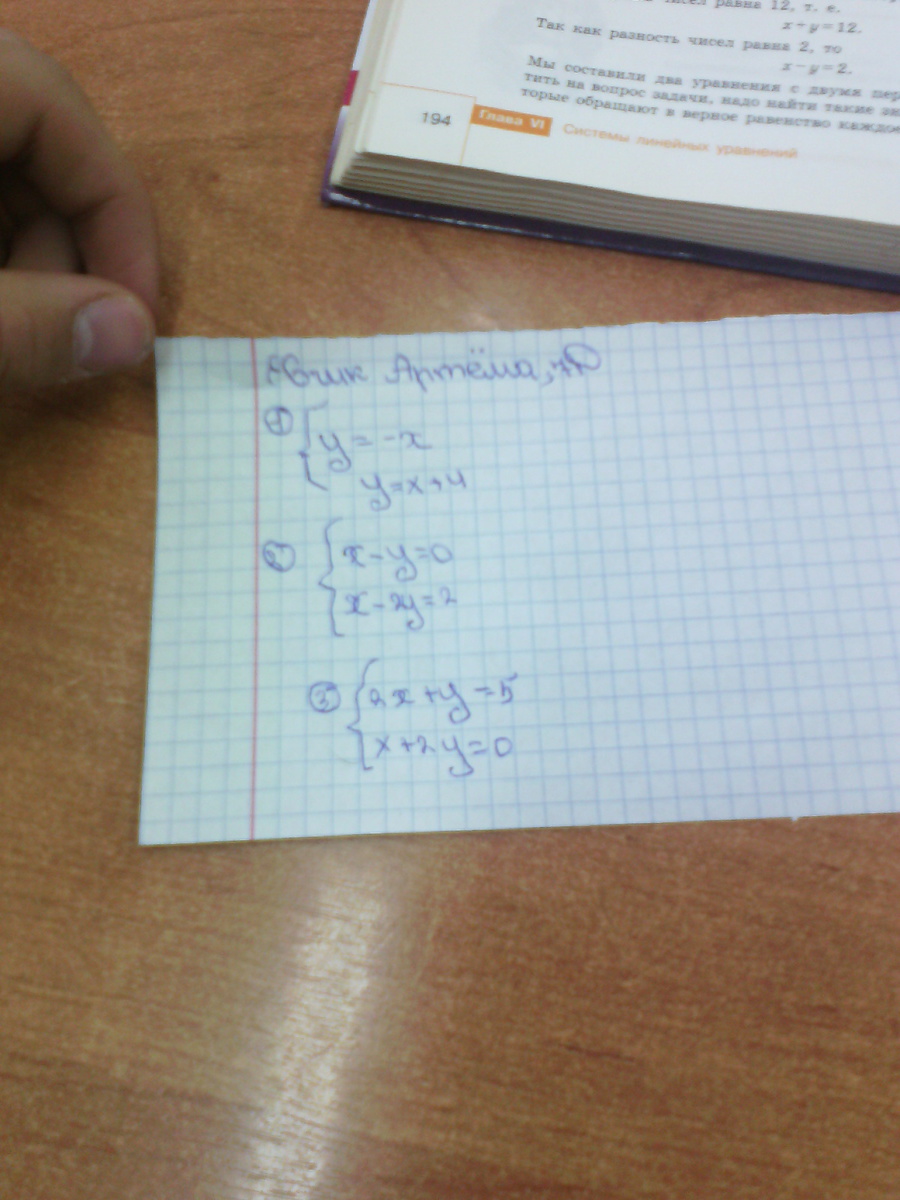 чисел равна 12, т. е.
x+y=12.
Так как разность чисел равна 2, то
x−y=2.
Мы составили два уравнения с двумя
тить на вопрос задачи, надо найти такие
торые обращают в верное равенство
194
Глава VI Системы линейных уравнений
Артёма,
① { y = -x
y=x+4
② { x-y=0
x-2y=2
③ { 2x+y=5
x+2y=0